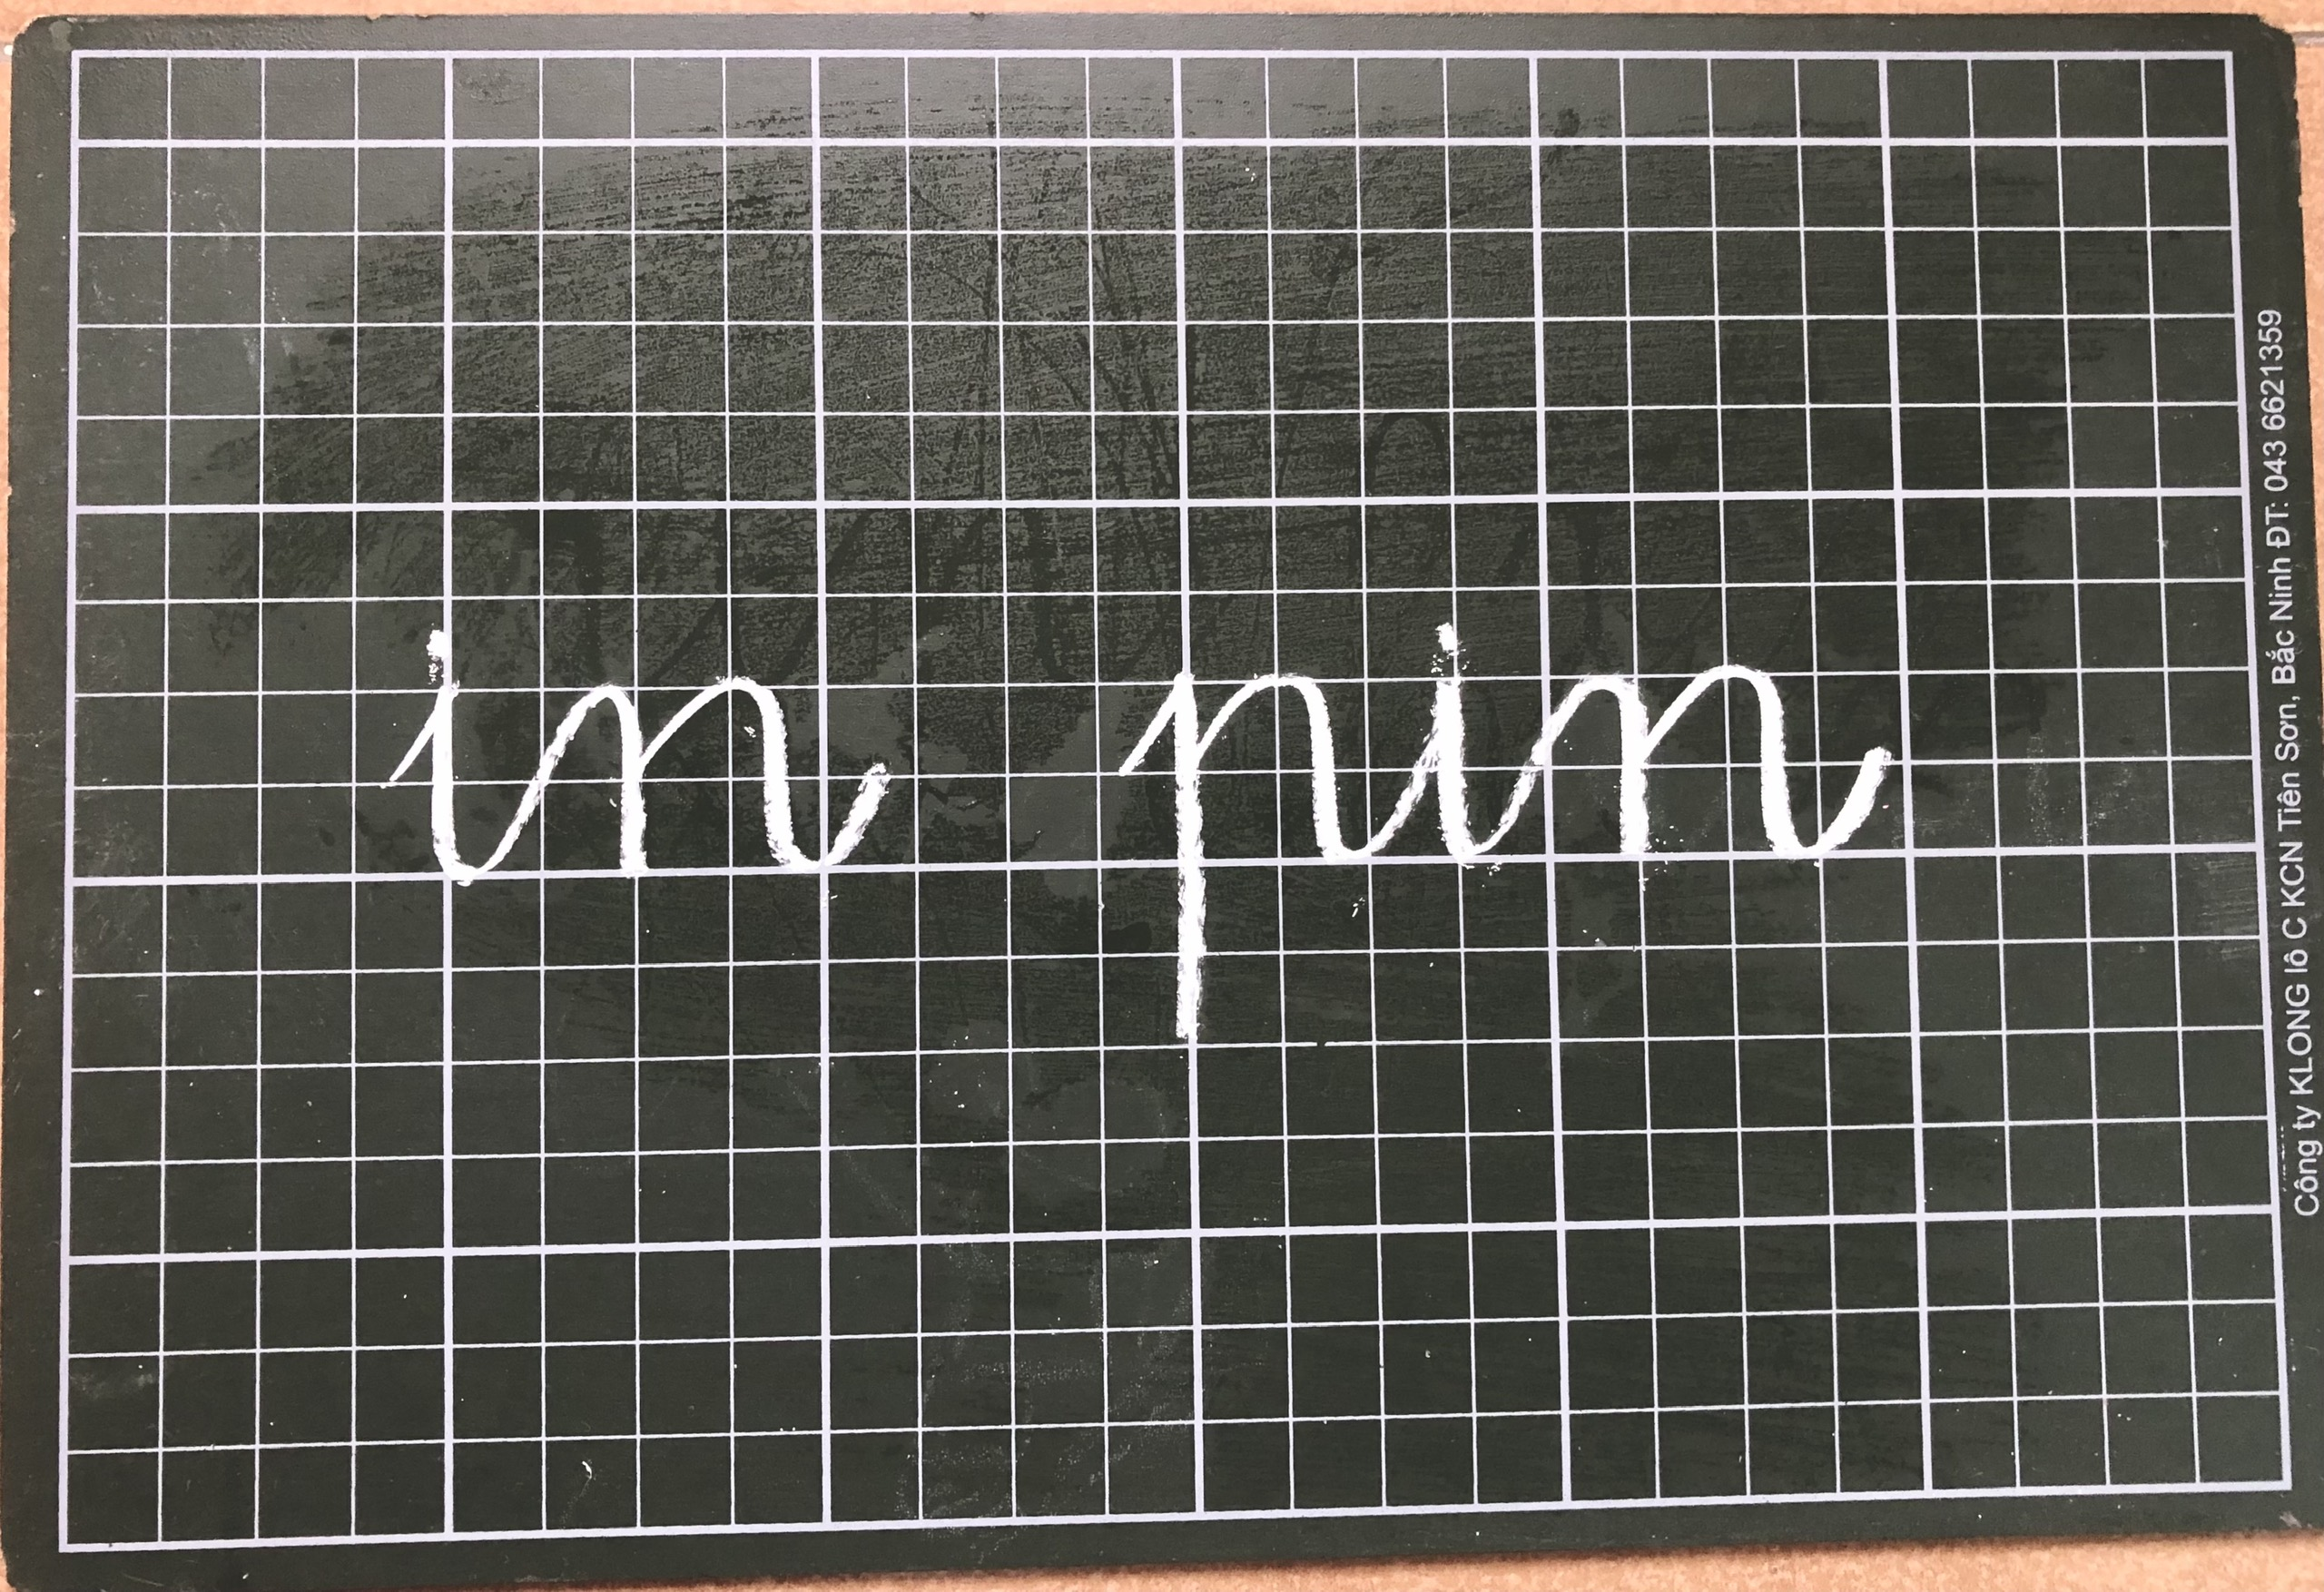 in pin
Công ty KLONG lô C KCN Tiên Sơn, Bắc Ninh ĐT: 043 6621359